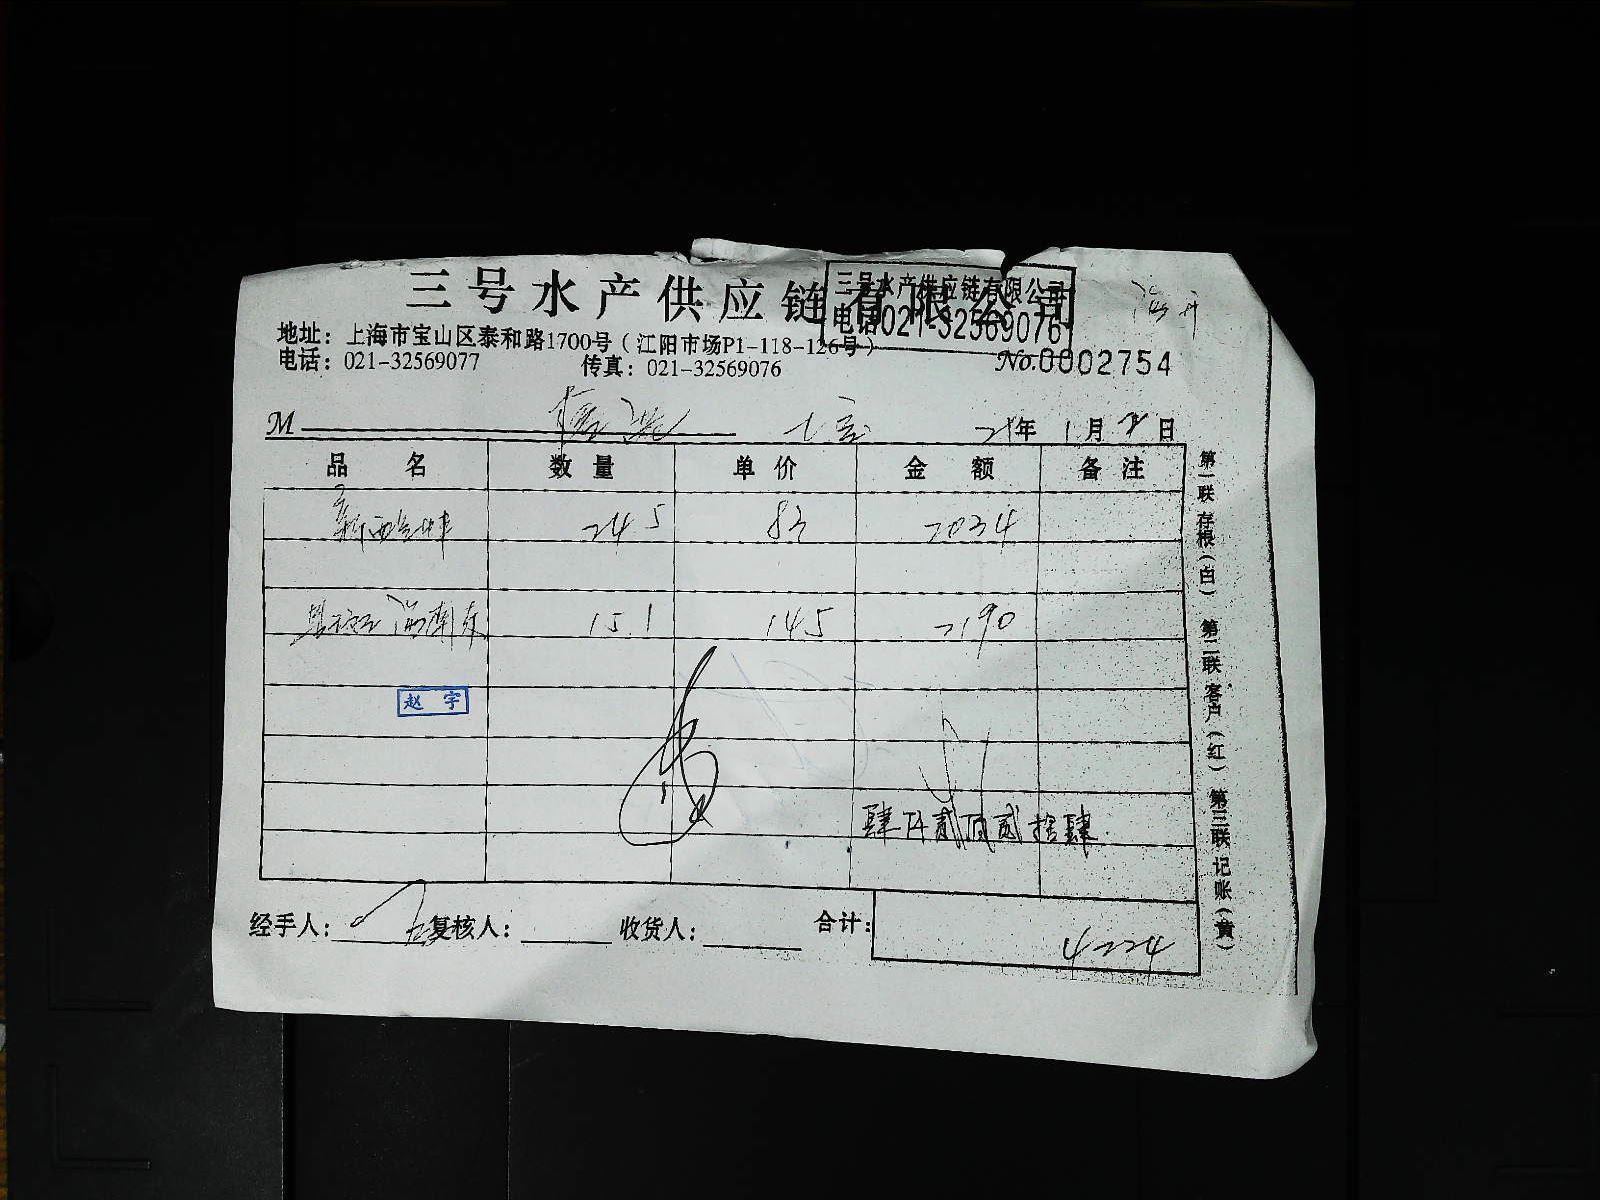 三号水产供应链有限公司
三号水产供应链有限公司
电话021-32569076
地址：上海市宝山区泰和路1700号（江阳市场P1-118-126号）
电话：021-32569077 传真：021-32569076
No.0002754
M 21年 1月 日
品名 数量 单价 金额 备注
245 83 2034
15.1 145 2190
赵宇
肆仟贰佰贰拾肆
经手人： 复核人： 收货人： 合计： 4224
第一联存根（白） 第二联客户（红） 第三联记账（黄）